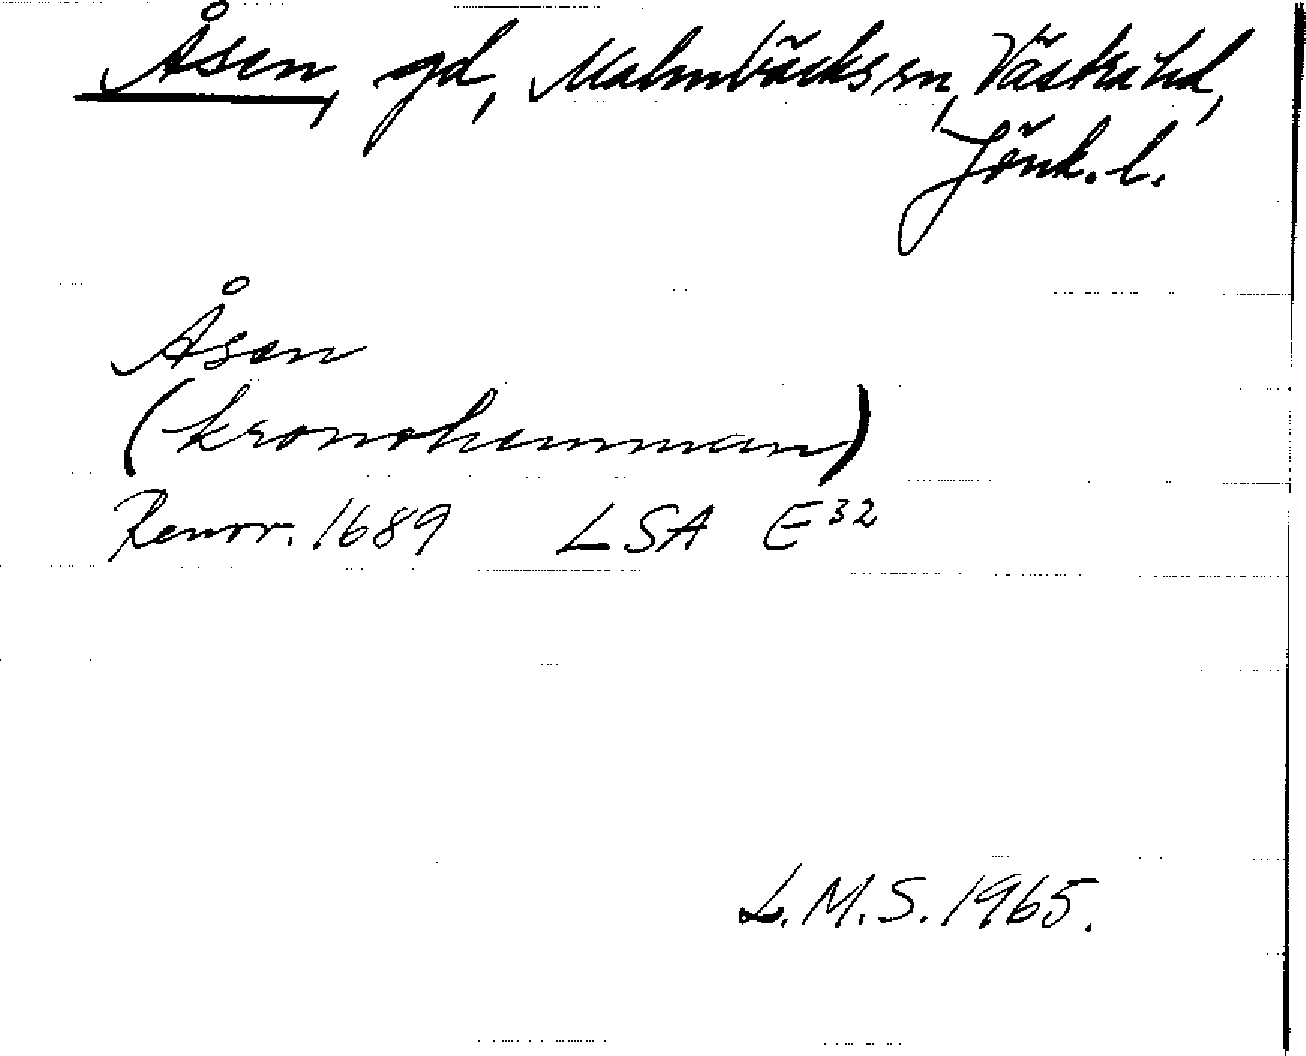 Åsen, gd, Malmbäcks sn, Västra hd,
Jönk. l.
Åsen
(kronohemman)
Renov. 1689 LSA E³²
L.M.S. 1965.